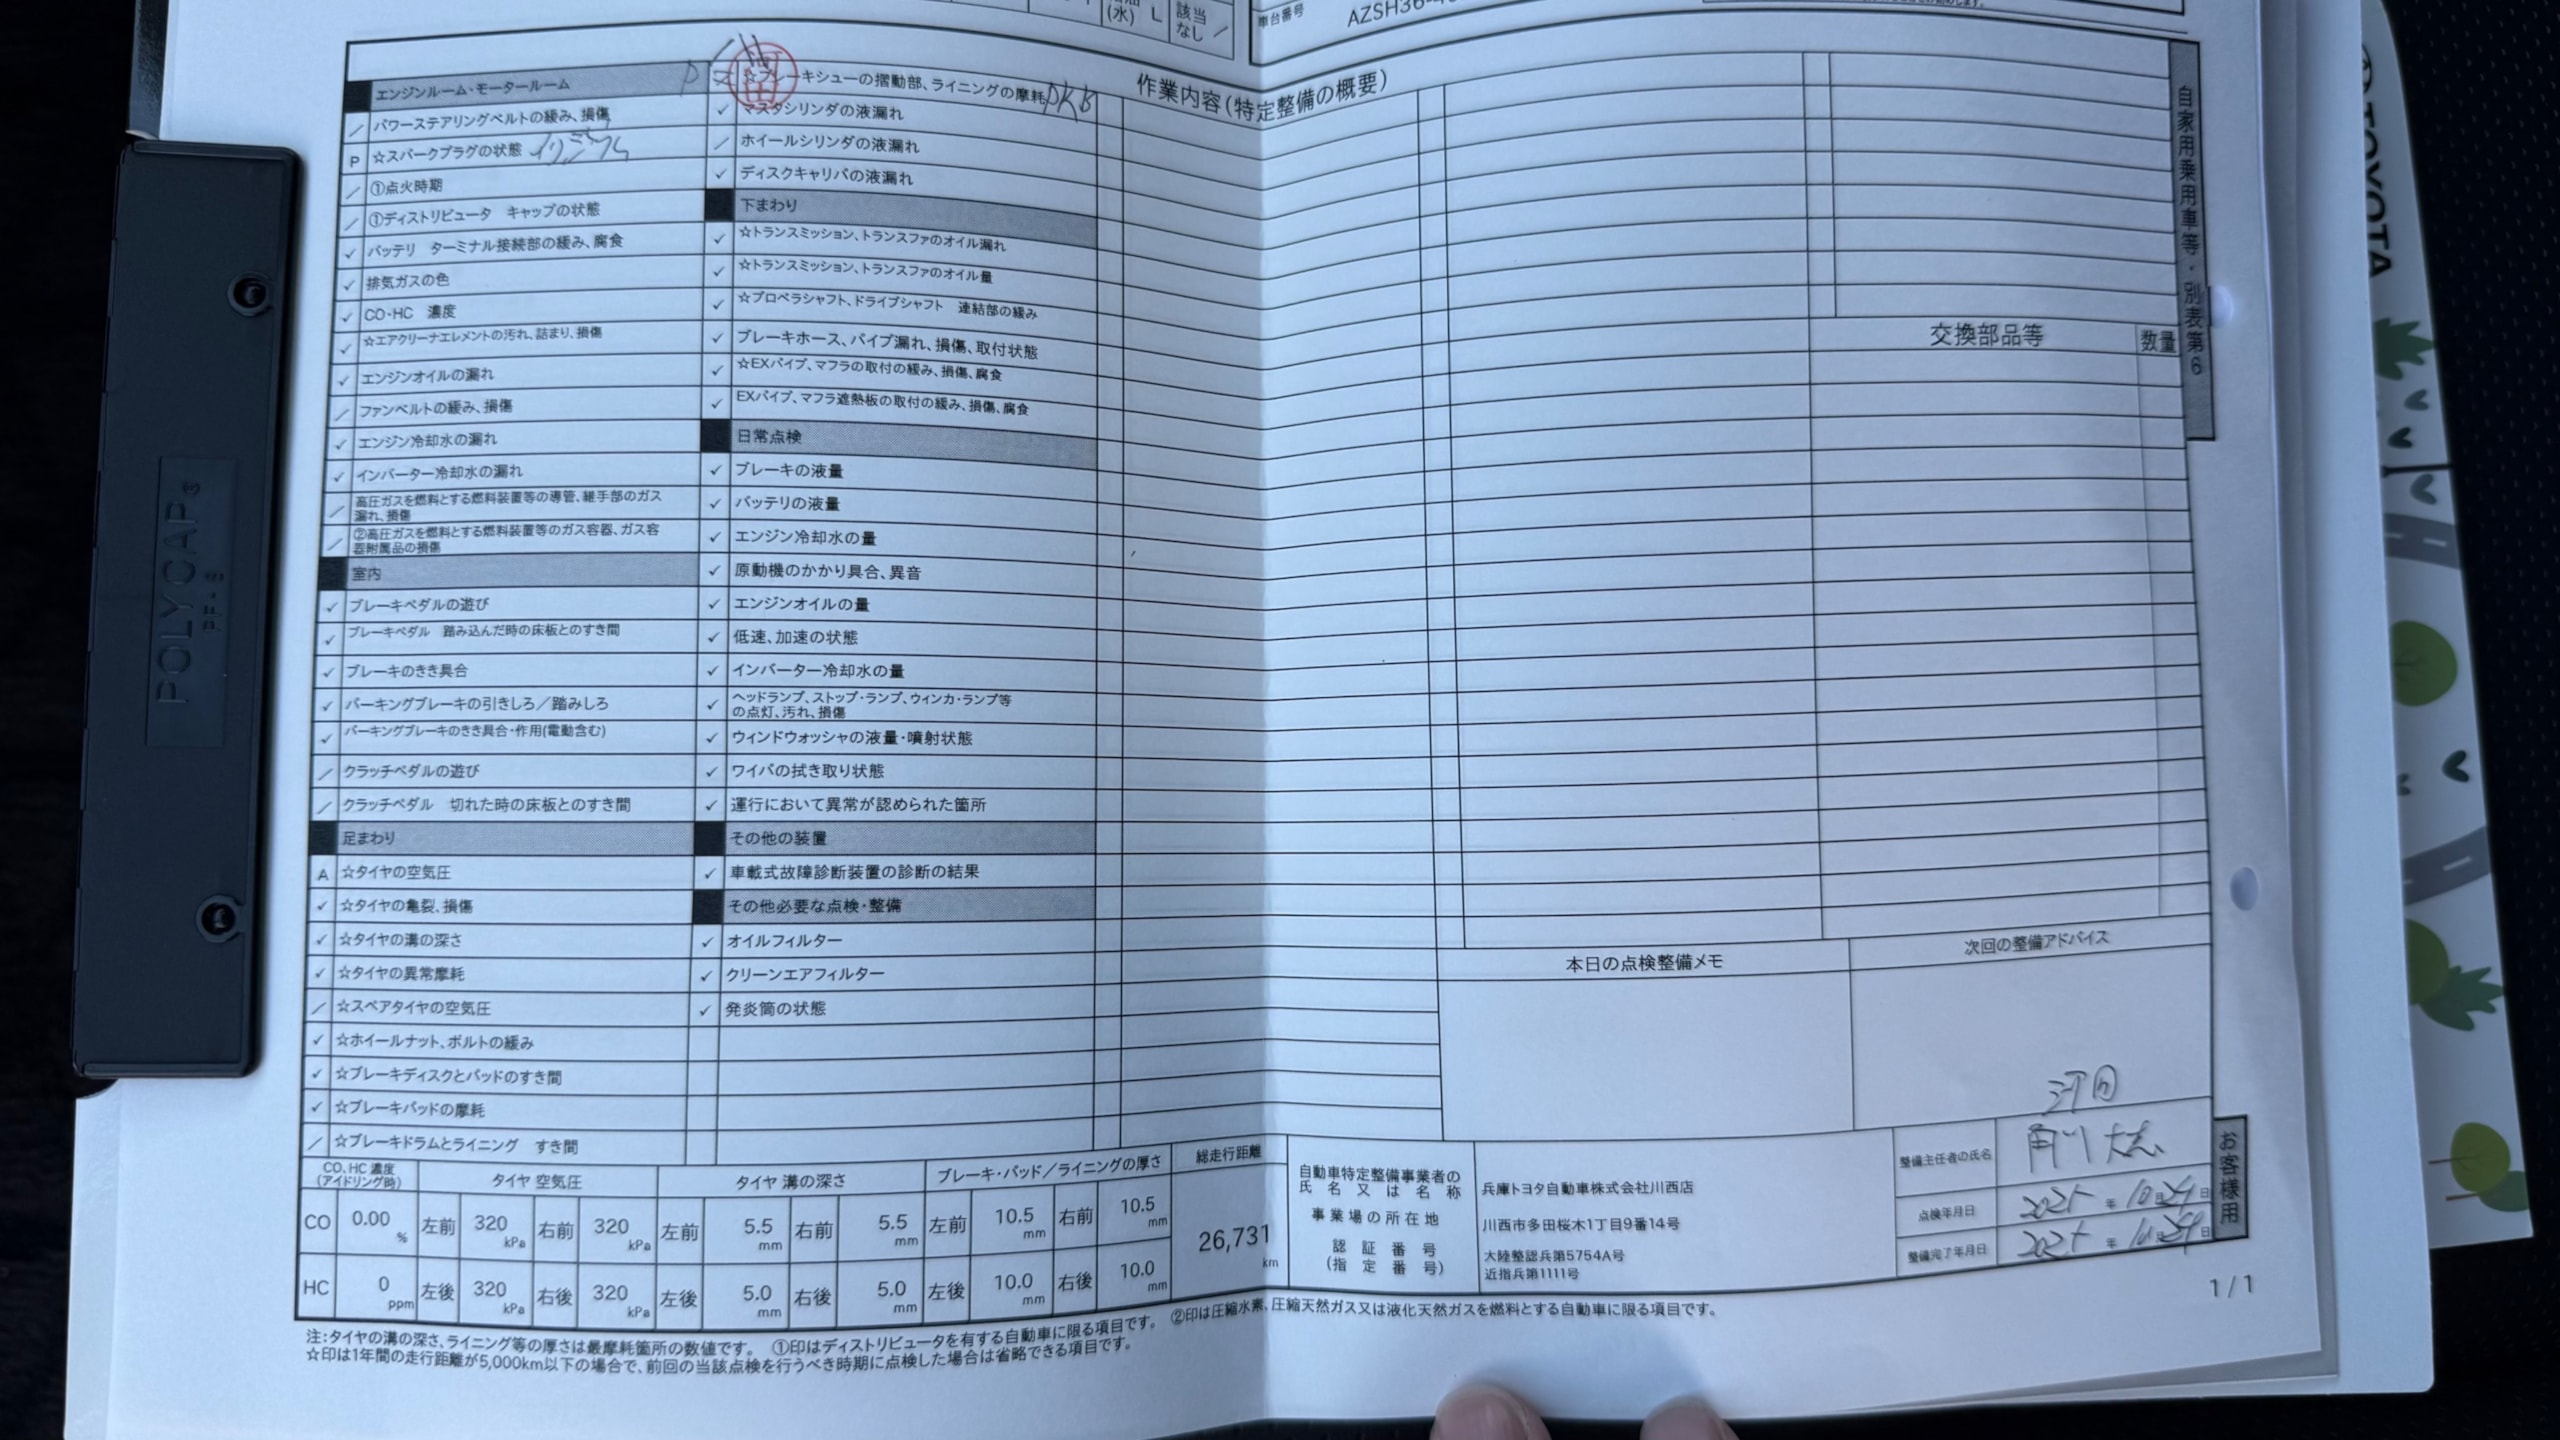 (水) L 該当なし ／
車台番号 AZSH36-
エンジンルーム・モータールーム
／ パワーステアリングベルトの緩み、損傷
P ☆スパークプラグの状態 イリジウム
／ ①点火時期
／ ①ディストリビュータ キャップの状態
✓ バッテリ ターミナル接続部の緩み、腐食
✓ 排気ガスの色
✓ CO・HC 濃度
✓ ☆エアクリーナエレメントの汚れ、詰まり、損傷
✓ エンジンオイルの漏れ
／ ファンベルトの緩み、損傷
✓ エンジン冷却水の漏れ
✓ インバーター冷却水の漏れ
／ 高圧ガスを燃料とする燃料装置等の導管、継手部のガス
漏れ、損傷
／ ②高圧ガスを燃料とする燃料装置等のガス容器、ガス容
器附属品の損傷
室内
✓ ブレーキペダルの遊び
✓ ブレーキペダル 踏み込んだ時の床板とのすき間
✓ ブレーキのきき具合
✓ パーキングブレーキの引きしろ／踏みしろ
✓ パーキングブレーキのきき具合・作用(電動含む)
／ クラッチペダルの遊び
／ クラッチペダル 切れた時の床板とのすき間
足まわり
A ☆タイヤの空気圧
✓ ☆タイヤの亀裂、損傷
✓ ☆タイヤの溝の深さ
✓ ☆タイヤの異常摩耗
／ ☆スペアタイヤの空気圧
✓ ☆ホイールナット、ボルトの緩み
✓ ☆ブレーキディスクとパッドのすき間
✓ ☆ブレーキパッドの摩耗
／ ☆ブレーキドラムとライニング すき間
☆ブレーキシューの摺動部、ライニングの摩耗 PKB
✓ マスタシリンダの液漏れ
／ ホイールシリンダの液漏れ
✓ ディスクキャリパの液漏れ
下まわり
✓ ☆トランスミッション、トランスファのオイル漏れ
✓ ☆トランスミッション、トランスファのオイル量
✓ ☆プロペラシャフト、ドライブシャフト 連結部の緩み
✓ ブレーキホース、パイプ漏れ、損傷、取付状態
✓ ☆EXパイプ、マフラの取付の緩み、損傷、腐食
✓ EXパイプ、マフラ遮熱板の取付の緩み、損傷、腐食
日常点検
✓ ブレーキの液量
✓ バッテリの液量
✓ エンジン冷却水の量
✓ 原動機のかかり具合、異音
✓ エンジンオイルの量
✓ 低速、加速の状態
✓ インバーター冷却水の量
✓ ヘッドランプ、ストップ・ランプ、ウィンカ・ランプ等
の点灯、汚れ、損傷
✓ ウィンドウォッシャの液量・噴射状態
✓ ワイパの拭き取り状態
✓ 運行において異常が認められた箇所
その他の装置
✓ 車載式故障診断装置の診断の結果
その他必要な点検・整備
✓ オイルフィルター
✓ クリーンエアフィルター
✓ 発炎筒の状態
作業内容(特定整備の概要)
交換部品等 数量
本日の点検整備メモ 次回の整備アドバイス
自家用乗用車等・別表第6
お客様用
CO、HC 濃度
(アイドリング時)
タイヤ 空気圧 タイヤ 溝の深さ ブレーキ・パッド／ライニングの厚さ 総走行距離
CO 0.00 % 左前 320 kPa 右前 320 kPa 左前 5.5 mm 右前 5.5 mm 左前 10.5 mm 右前 10.5 mm
HC 0 ppm 左後 320 kPa 右後 320 kPa 左後 5.0 mm 右後 5.0 mm 左後 10.0 mm 右後 10.0 mm
26,731 km
自動車特定整備事業者の
氏名又は名称
兵庫トヨタ自動車株式会社川西店
事業場の所在地
川西市多田桜木1丁目9番14号
認証番号
(指定番号)
大陸整認兵第5754A号
近指兵第1111号
整備主任者の氏名
点検年月日 2025 年 10 月 24 日
整備完了年月日 2025 年 10 月 24 日
1/1
注:タイヤの溝の深さ、ライニング等の厚さは最摩耗箇所の数値です。 ①印はディストリビュータを有する自動車に限る項目です。 ②印は圧縮水素、圧縮天然ガス又は液化天然ガスを燃料とする自動車に限る項目です。
☆印は1年間の走行距離が5,000km以下の場合で、前回の当該点検を行うべき時期に点検した場合は省略できる項目です。
POLYCAP
PF-S
TOYOTA